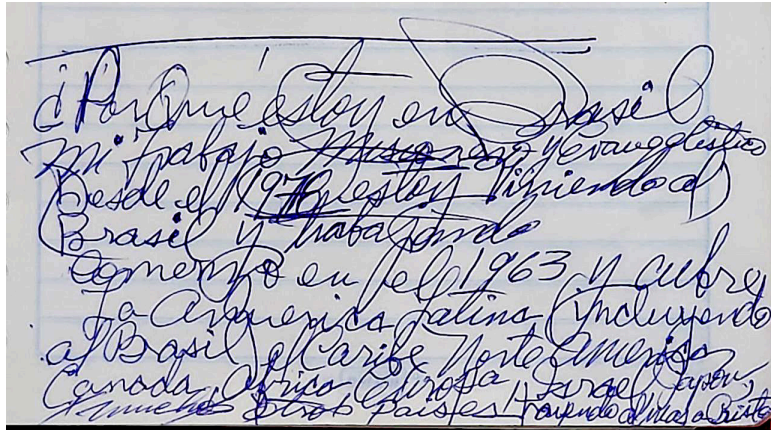 ¿Por Qué estoy en Brasil
mi trabajo Misionero y Evangelistico
Desde el 1970 estoy Viniendo al
Brasil y trabajando
Comenzo en el 1963 y cubre
La America Latina (incluyendo
al Brasil) el Caribe Norte America
Canada, Africa Europa Israel Japon,
y muchos otros paises trayendo almas a Cristo